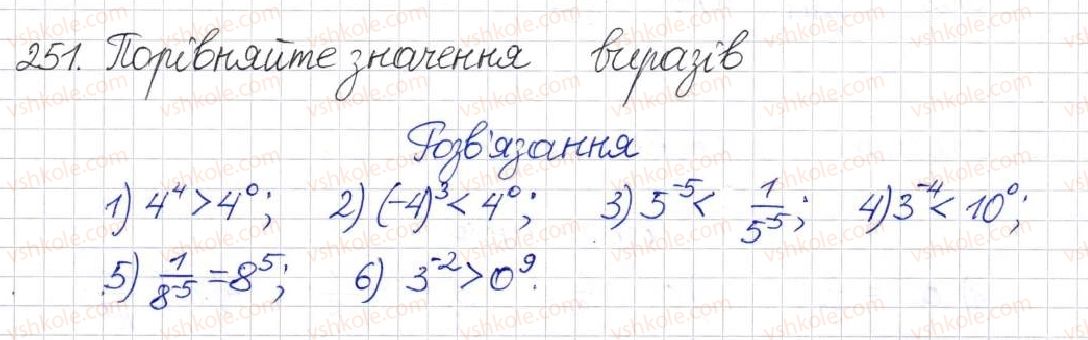 251. Порівняйте значення виразів
Розв'язання
1) 4⁴ > 4⁰; 2) (-4)³ < 4⁰; 3) 5⁻⁵ < 1/5⁵; 4) 3⁻⁴ < 10⁰;
5) 1/8⁻⁵ = 8⁵; 6) 3⁻² > 0⁹.